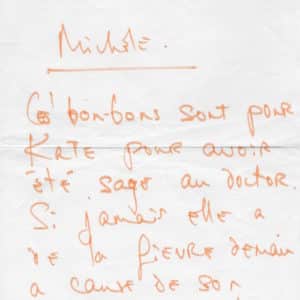 Michèle.
Ces bon-bons sont pour
Kate pour avoir
été sage au doctor.
Si jamais elle a
de la fievre demain
a cause de son